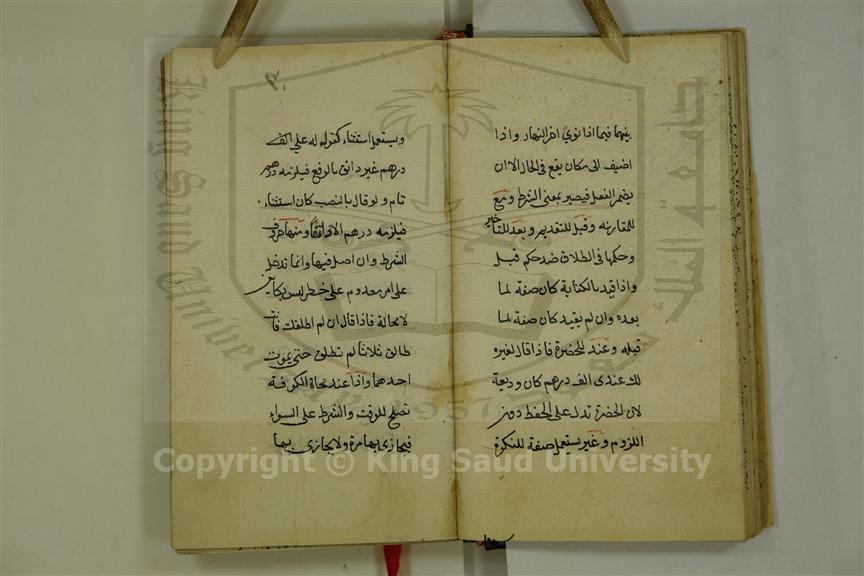 بينهما فيما اذا نوي اخر النهار واذا
اضيف الى مكان يقع في الحال الا ان
يضمر الفعل فيصير بمعنى الشرط ومع
للمقارنه وقبل للتقديم وبعد للتاخير
وحكمها في الطلاق ضد حكم قبل
واذا قيد بالكناية كان صفة لما
بعده وان لم يقيد كان صفة لما
قبله وعند للحضرة فاذا قال لغيره
لك عندى الف درهم كان وديعة
لان الحضرة تدل على الحفظ دون
اللزوم وغير يستعمل صفة للنكرة
٣٠
ويستعمل استثناء كقوله له علي الف
درهم غير دانق بالرفع فيلزمه درهم
تام ولو قال بالنصب كان استثناء
فيلزمه درهم الا دانقا ومنها حروف
الشرط وان اصل فيها وانما تدخل
على امر معدوم على خطر ليس بكاين
لا محالة فاذا قال ان لم اطلقك فانت
طالق ثلاثا لم تطلق حتى يموت
احدهما واذا عند نحاة الكوفة
تصلح للوقت والشرط على السواء
فيجازى بها مرة ولا يجازى بها
King Saud University
جامعة الملك سعود
1957
Copyright © King Saud University